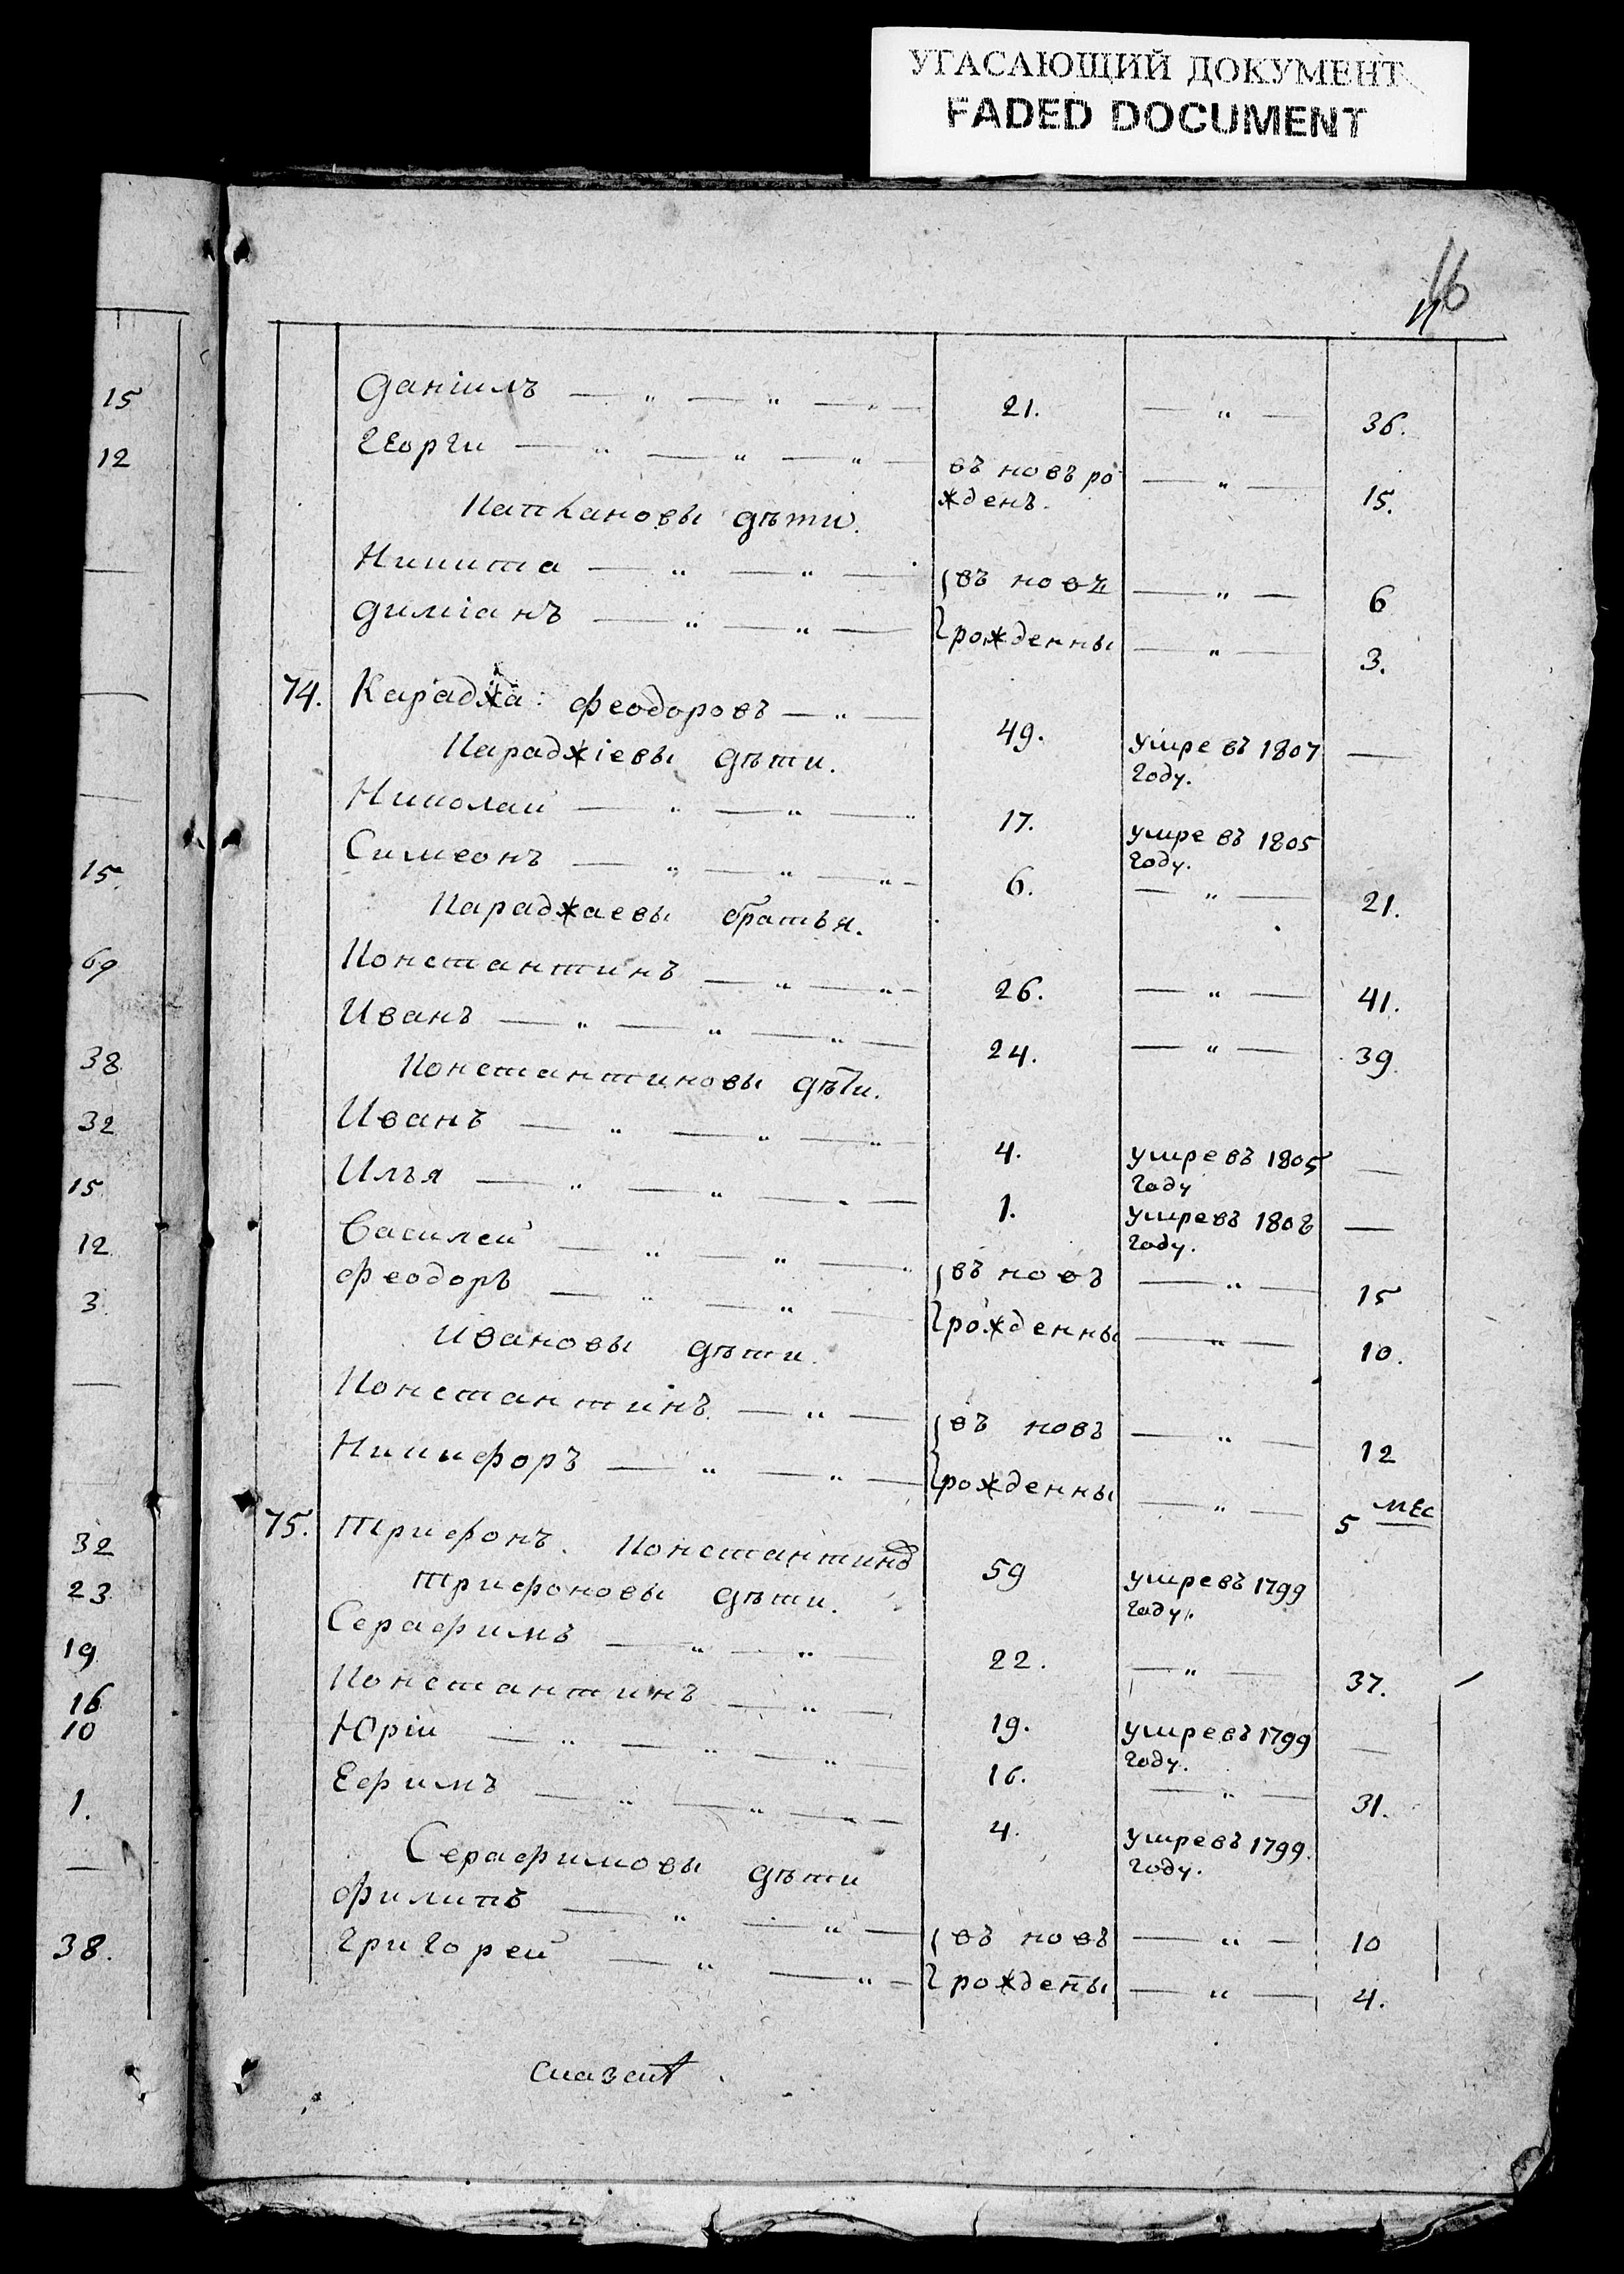 УГАСАЮЩИЙ ДОКУМЕНТ
FADED DOCUMENT
16
Даніилъ — „ — „ — „ — 21. — „ — 36.
Георги — „ — „ — „ — въ новъ ро — „ — 15.
жденъ.
Паткановы дѣти.
Никита — „ — „ — въ новъ — „ — 6
Диміанъ — „ — „ — рожденны — „ — 3.
74. Караджа: Феодоровъ — „ — 49. умре въ 1807 —
году.
Караджіевы дѣти.
Николай — „ — „ — „ 17. умре въ 1805
году.
Симеонъ — „ — „ — „ — 6. — „ — 21.
Караджаевы братья.
Константинъ — „ — „ — 26. — „ — 41.
Иванъ — „ — „ — „ — 24. — „ — 39.
Константиновы дѣти.
Иванъ — „ — „ — „ — 4. умре въ 1805 —
году
Илья — „ — „ — „ — 1. умре въ 1808 —
году.
Василей — „ — „ — „ въ новъ — „ — 15
Феодоръ — „ — „ — рожденны — „ — 10.
Ивановы дѣти.
Константинъ — „ — въ новъ — „ — 12
Никифоръ — „ — „ — рожденны — „ — 5 мес
75. Трифонъ. Константиновъ 59 умре въ 1799
году.
Трифоновы дѣти.
Серафимъ — „ — „ — 22. — „ — 37.
Константинъ — „ — 19. умре въ 1799 —
году.
Юрій — „ — „ — „ — 16. — „ — 31.
Ефимъ — „ — „ — „ — 4. умре въ 1799.
году.
Серафимовы дѣти
Филипъ — „ — „ — въ новъ — „ — 10
Григорей — „ — „ — рождены — „ — 4.
15
12
—
—
—
15.
69
38
32
15
12
3
—
32
23
19
16
10
1.
—
38.